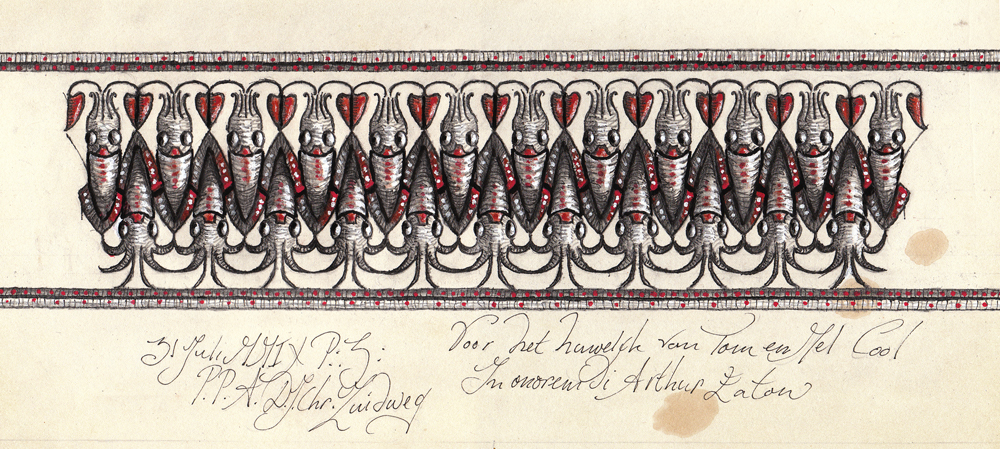 31 Juli MMIX P.Z.
P.P.A. D.J.Chr. Zuidweg
Voor het huwelijk van Tom en Mel Cool
In onorem Di Arthur Eaton